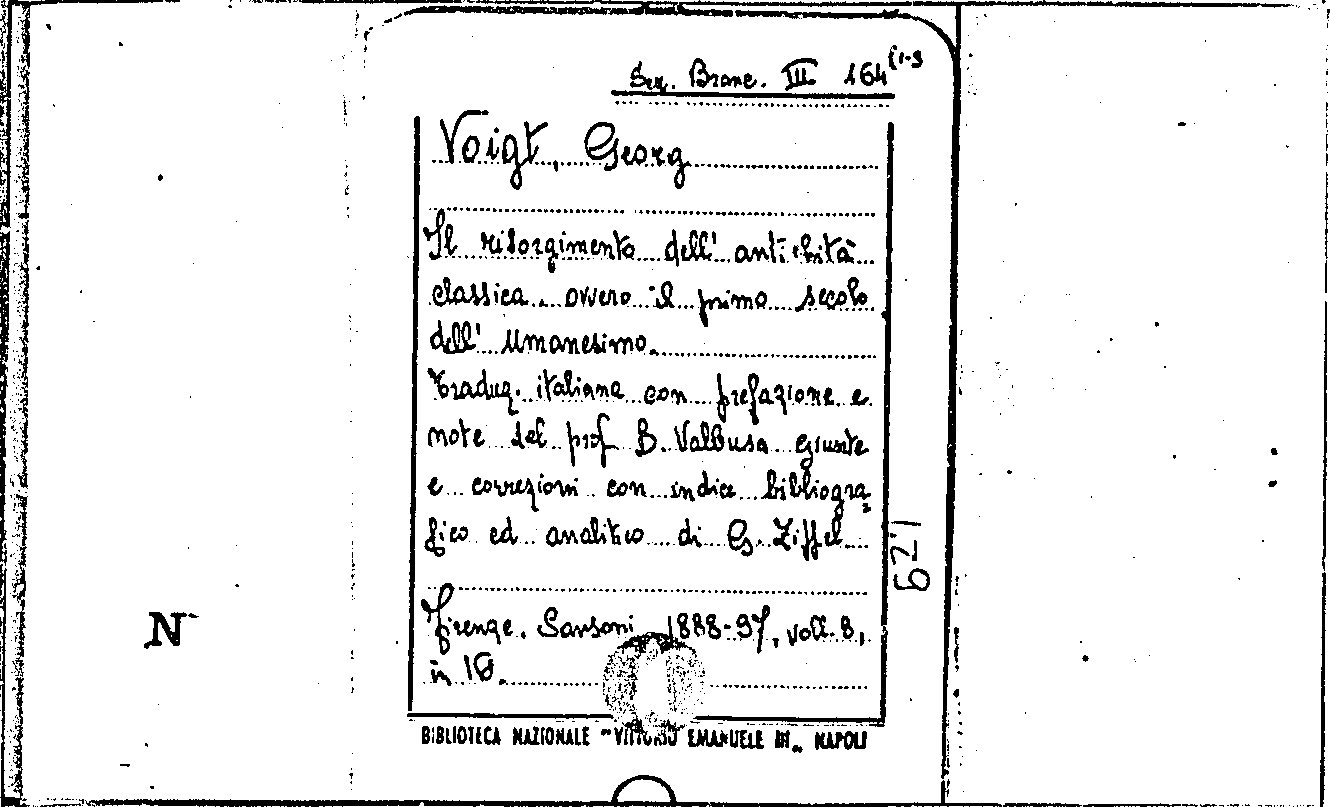 Sez. Branc. III 164 (1-3
Voigt, Georg
Il risorgimento dell' antichità
classica ovvero il primo secolo
dell' Umanesimo.
Traduz. italiana con prefazione e
note del prof D. Valbusa giunte
e correzioni con indice bibliogra=
fico ed analitico di G. Zippel
Firenze. Sansoni 1888-97, voll. 3,
in 16.
BIBLIOTECA NAZIONALE "VITTORIO EMANUELE III" NAPOLI
N